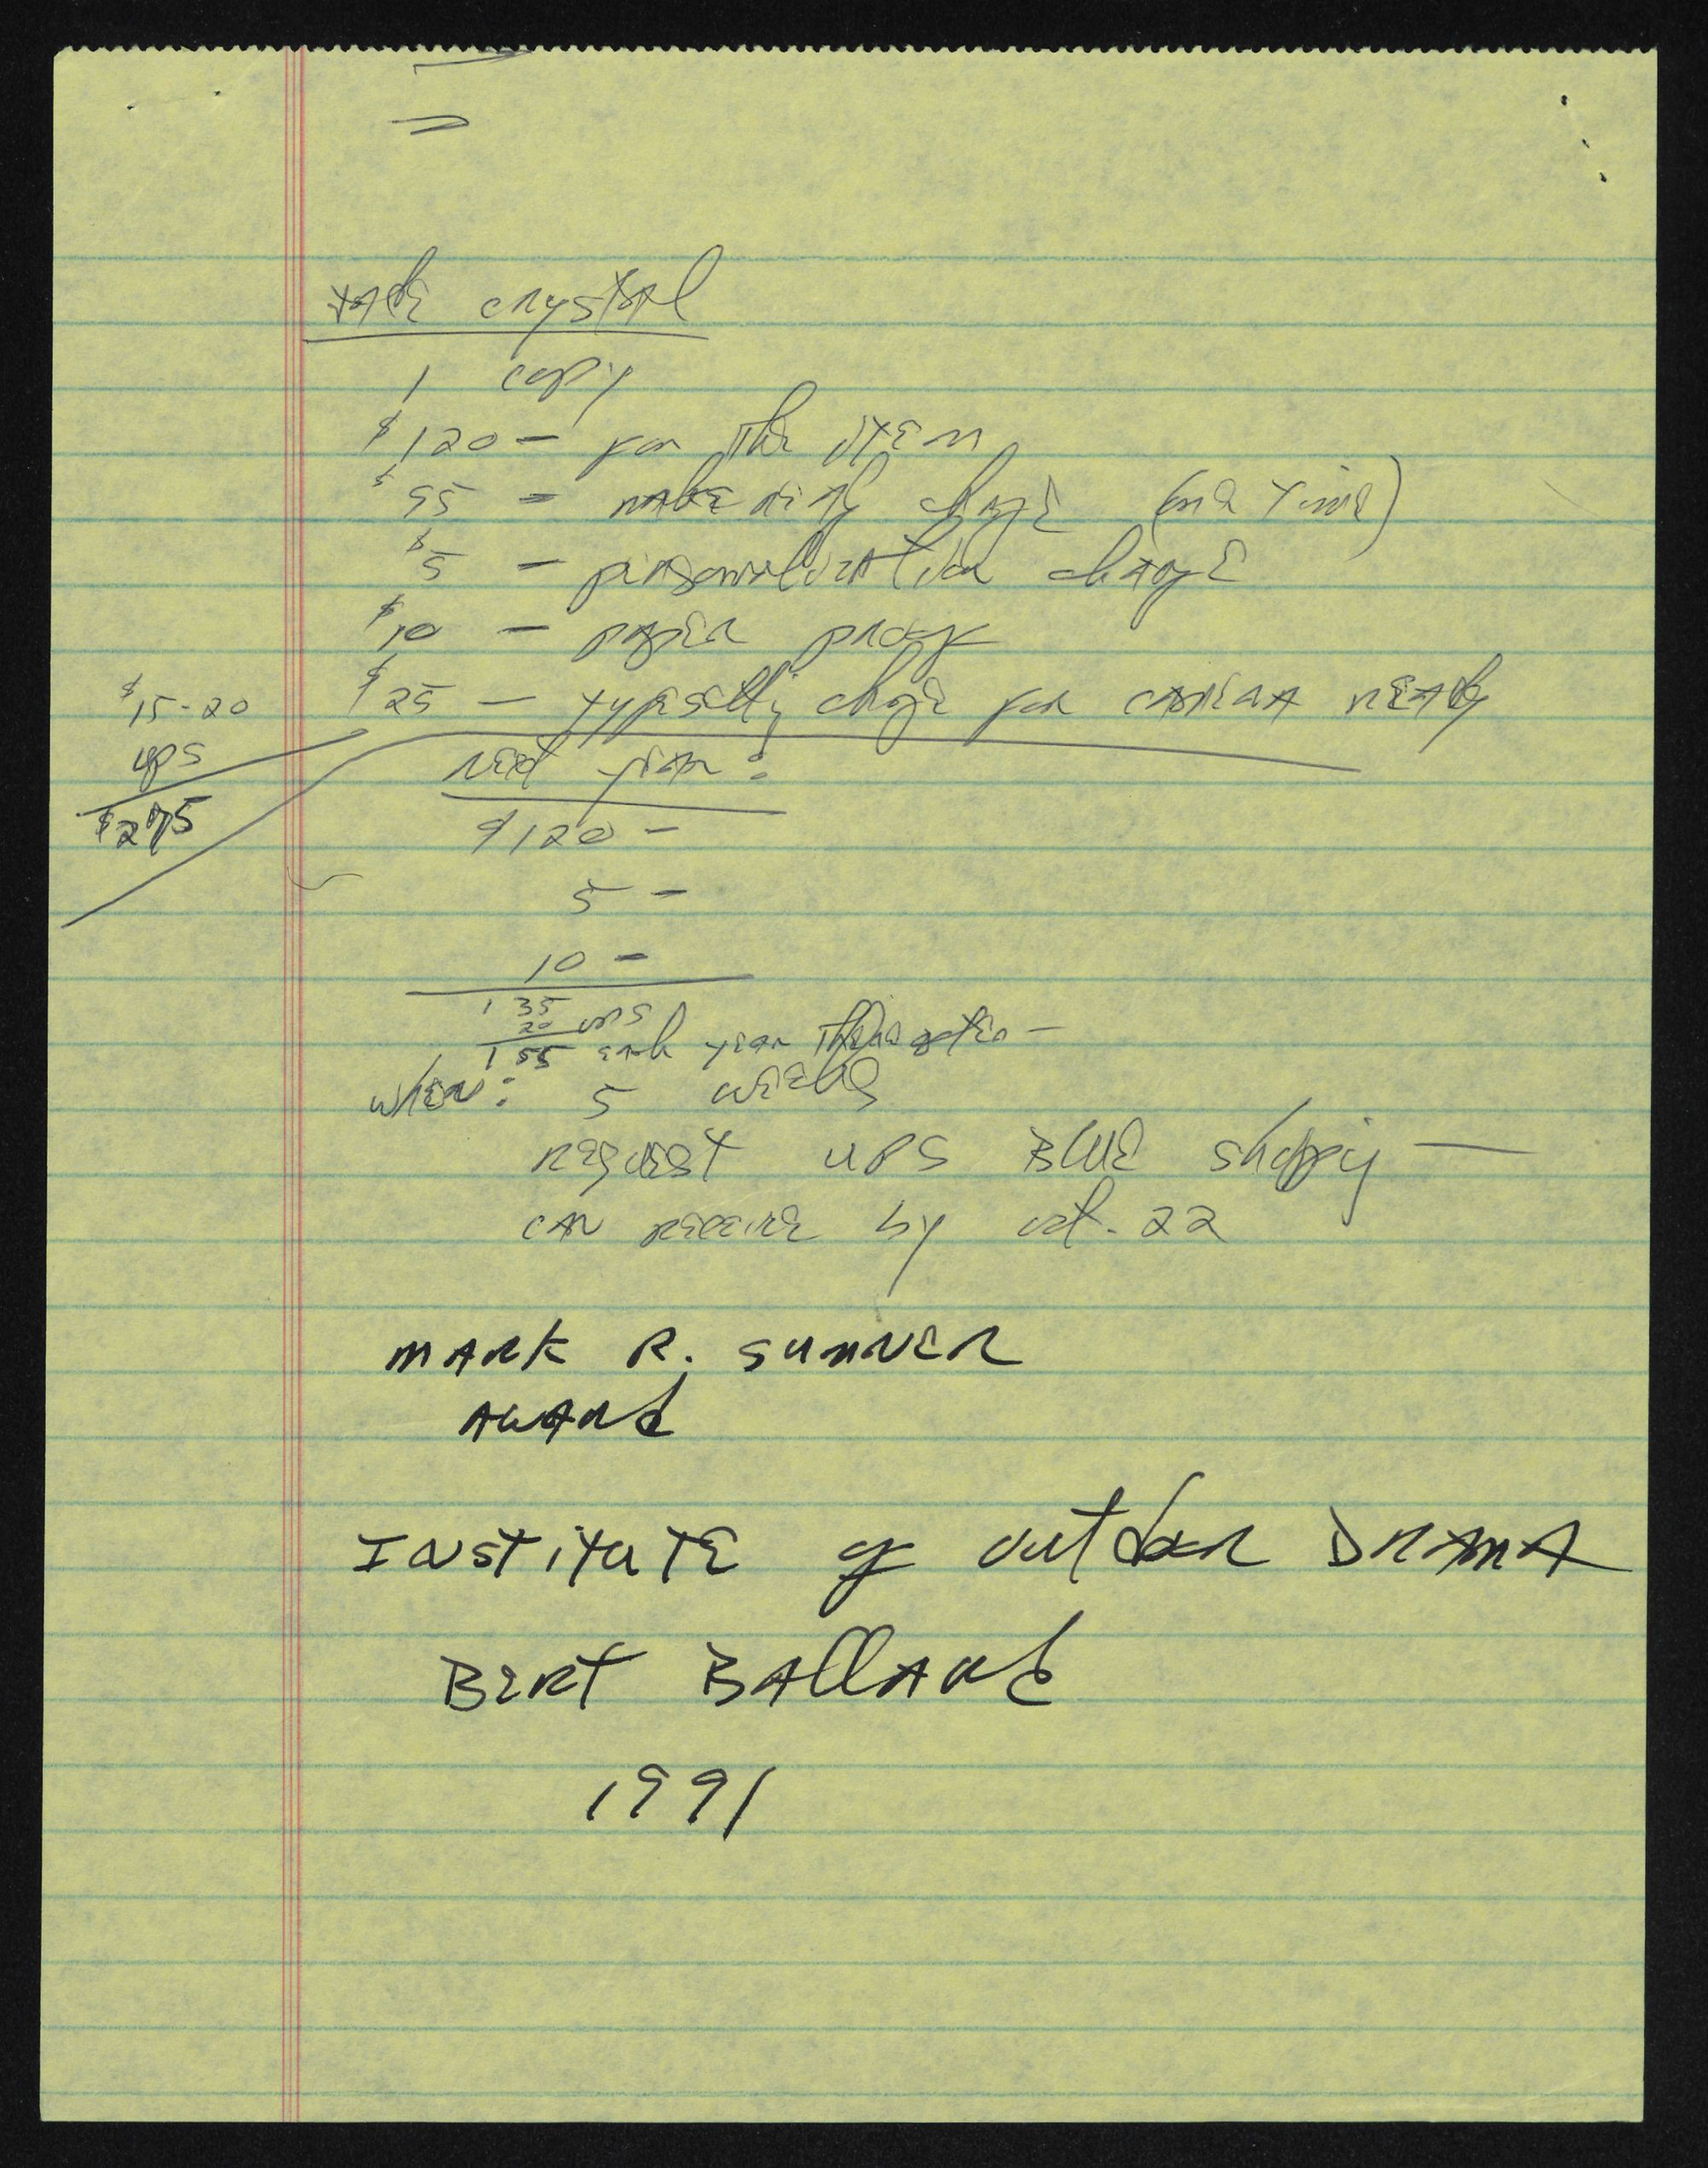 crystal
1 copy
$120 - for the item
$55 - make ready charge (one time)
$5 - personalization charge
$10 - paper proof
$25 - typesetting charge for camera ready
$15-20
ups
$275
next year:
$120 -
5 -
10 -
135
20 ups
155 each year thereafter -
when: 5 weeks
request UPS Blue shipping -
can receive by oct. 22
MARK R. SUMNER
AWARd
INSTITUTE of outdoor DRAMA
BERT BAllARd
1991